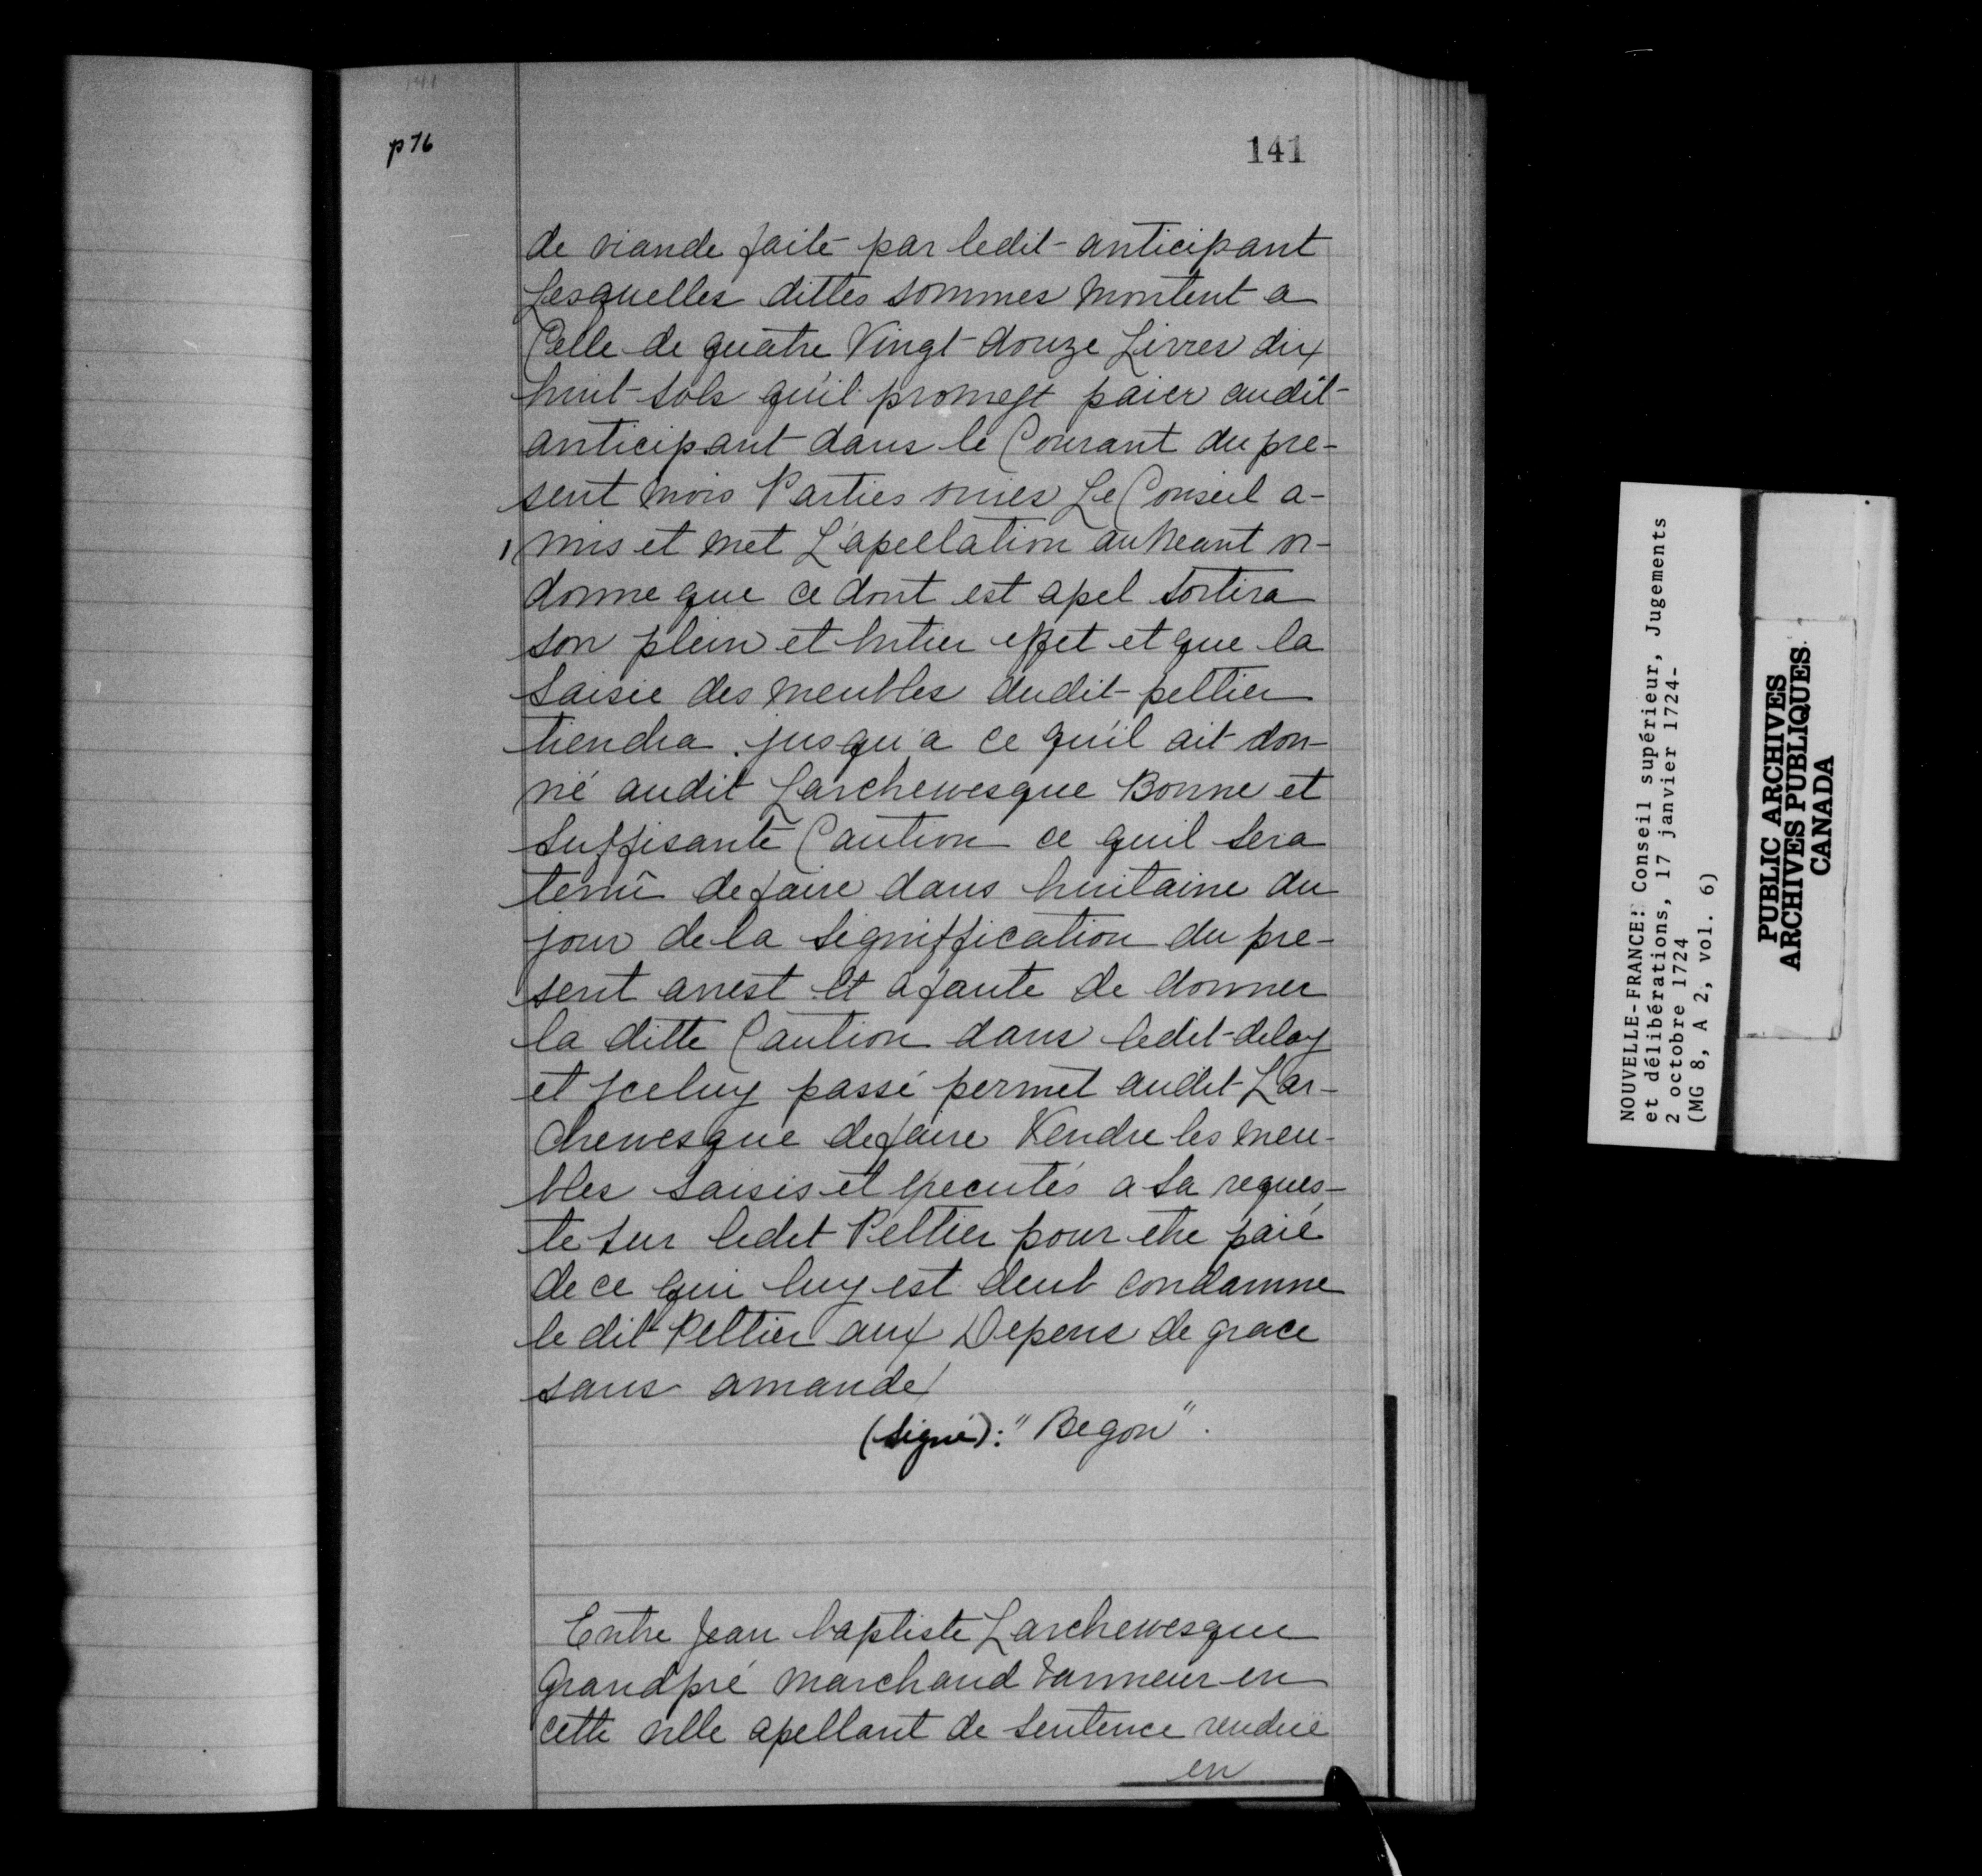 141
p 76
141
de viande faite par ledit anticipant
Lesquelles dittes sommes montent a
Celle de quatre Vingt douze Livres dix
huit sols qu'il promest paier audit
anticipant dans le Courant du pre-
sent mois Parties ouies Le Conseil a
mis et met L'apellation au Neant or-
donne que ce dont est apel sortira
son plein et entier effet et que la
saisie des meubles dudit peltier
tiendra jusqu'a ce qu'il ait don-
né audit Larchevesque Bonne et
suffisante Caution ce quil sera
tenû de faire dans huitaine du
jour de la signiffication du pre-
sent arrest et a faute de donner
la ditte Caution dans ledit delay
et Iceluy passé permet audit Lar-
chevesque de faire Vendre les meu-
bles saisis et executés a sa reques-
te sur ledit Peltier pour etre paié
de ce qui luy est deub condamne
le dit Peltier aux Depens de grace
sans amande
(signé): "Begon".
Entre Jean baptiste Larchevesque
Grandpré marchand tanneur en
cette ville apellant de sentence rendüe
en
NOUVELLE-FRANCE: Conseil supérieur, Jugements
et délibérations, 17 janvier 1724-
2 octobre 1724
(MG 8, A 2, vol. 6)
PUBLIC ARCHIVES
ARCHIVES PUBLIQUES
CANADA